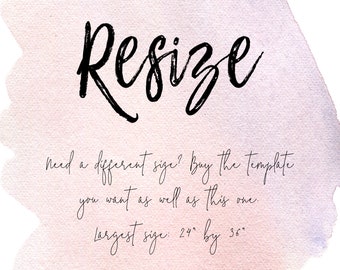 Resize
Need a different size? Buy the template
you want as well as this one.
Largest size: 24" by 36"